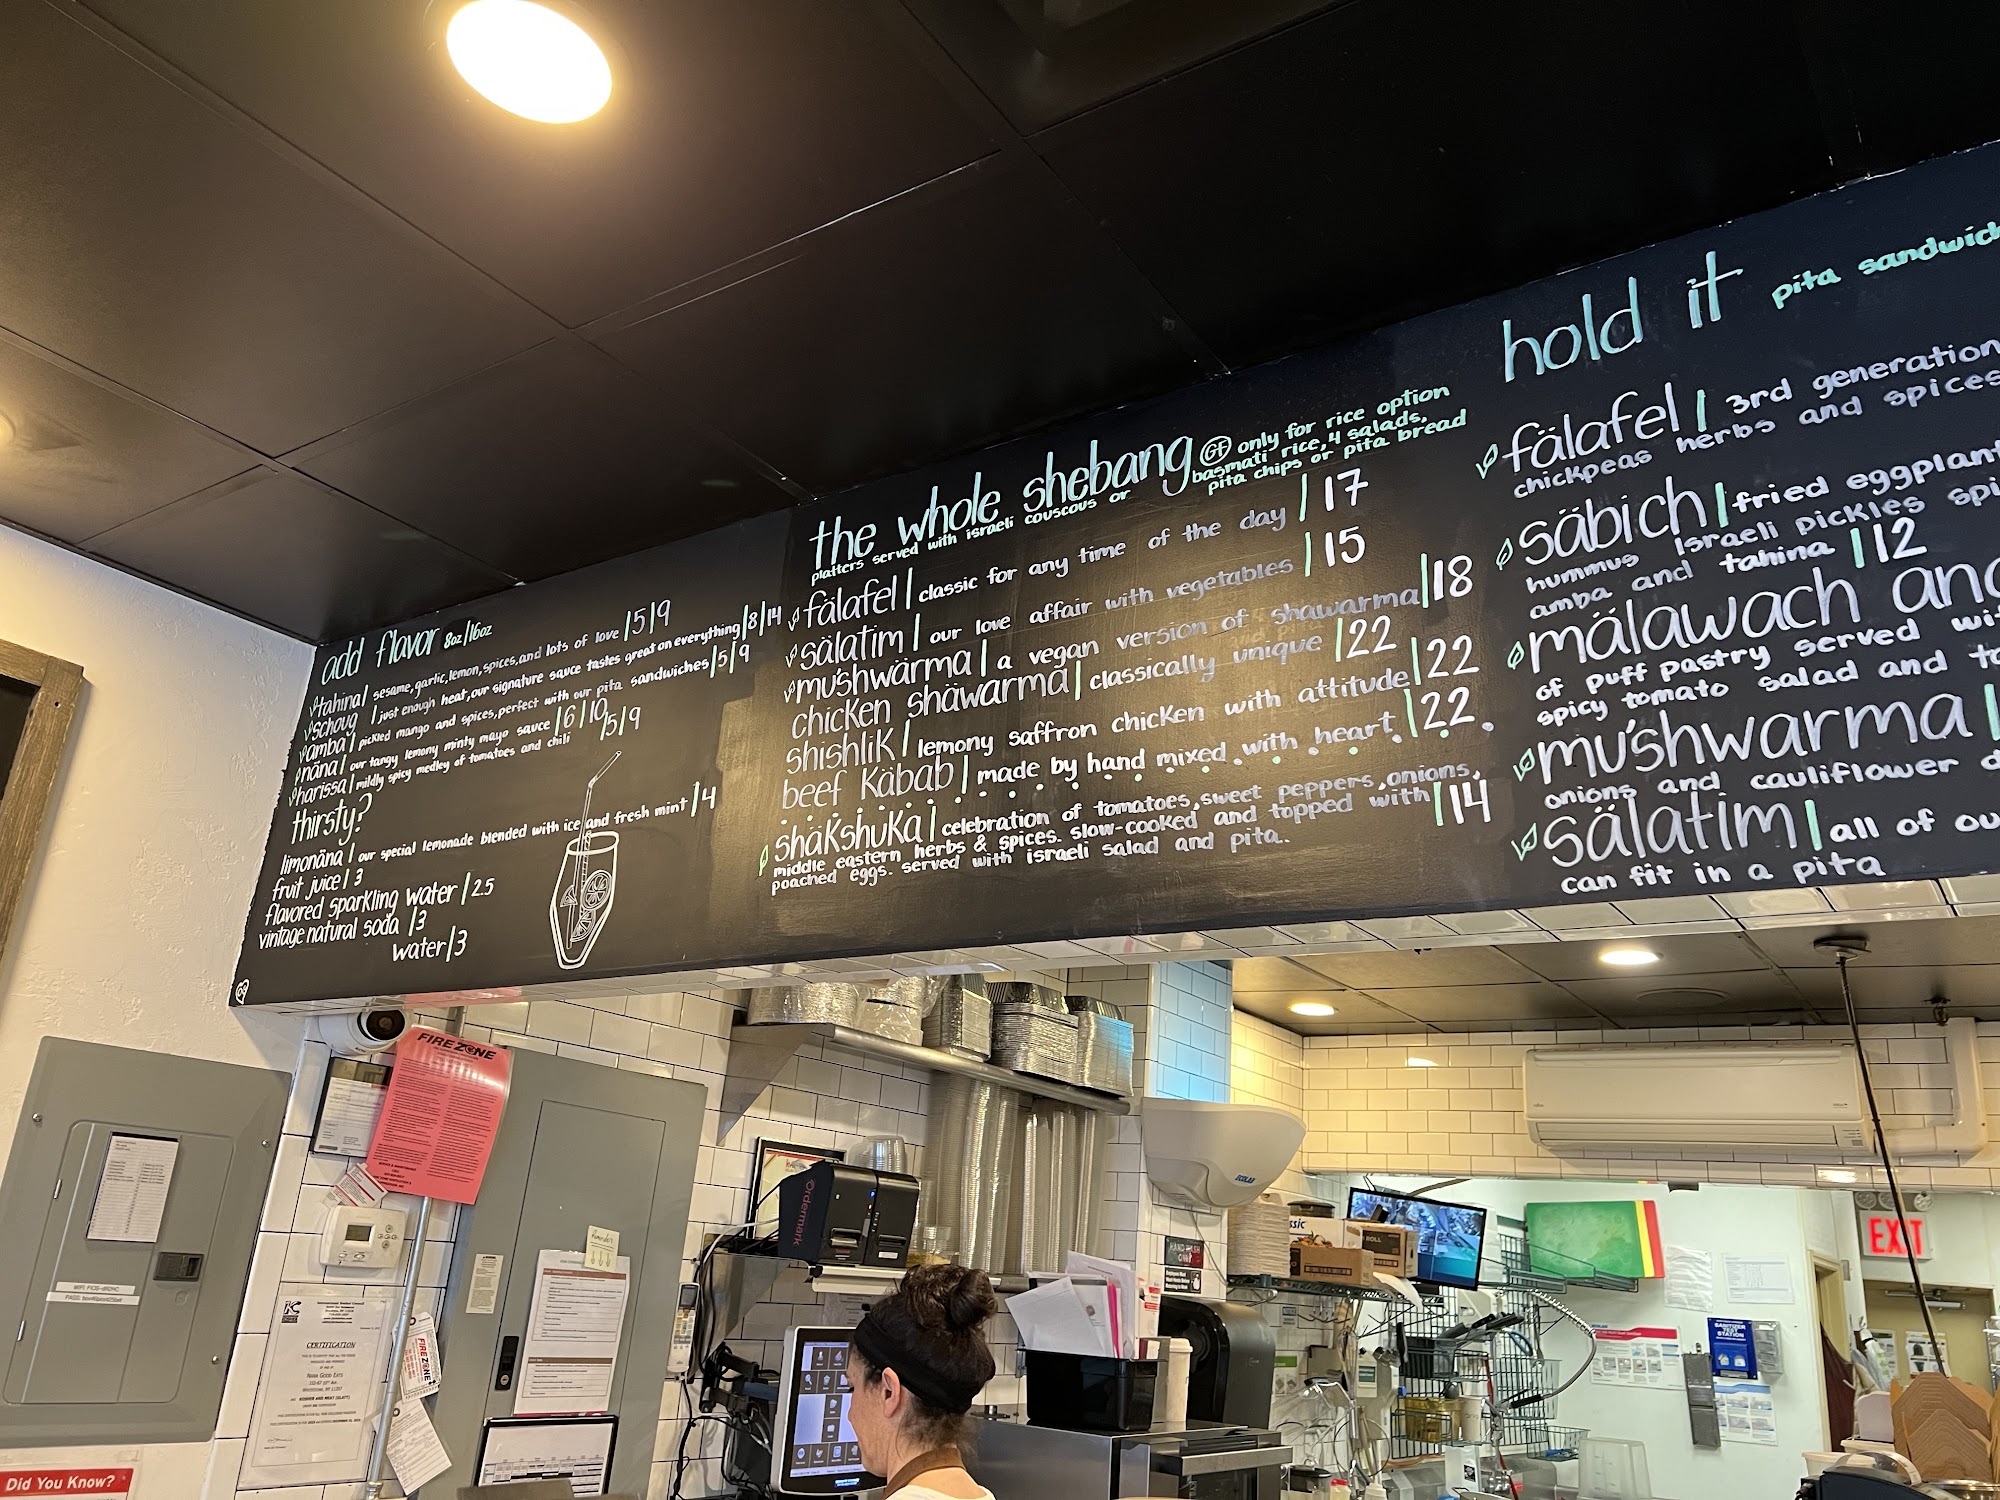 add flavor 8oz/16oz
tahina| sesame, garlic, lemon, spices, and lots of love |5|9
schoug |just enough heat, our signature sauce tastes great on everything|8|14
amba| pickled mango and spices, perfect with our pita sandwiches|5|9
näna| our tangy lemony minty mayo sauce |6|10
harissa| mildly spicy medley of tomatoes and chili |5|9
thirsty?
limonäna | our special lemonade blended with ice and fresh mint |4
fruit juice | 3
flavored sparkling water | 2.5
vintage natural soda |3
water|3
the whole shebang GF only for rice option
platters served with israeli couscous or basmati rice, 4 salads,
pita chips or pita bread
fälafel | classic for any time of the day | 17
sälatim | our love affair with vegetables | 15
mu'shwärma | a vegan version of shawarma |18
chicken shäwarma| classically unique |22
shishlik | lemony saffron chicken with attitude|22
beef käbab | made by hand mixed with heart |22
shäkshuka | celebration of tomatoes, sweet peppers, onions,
middle eastern herbs & spices. slow-cooked and topped with |14
poached eggs. served with israeli salad and pita..
hold it pita sandwich
fälafel | 3rd generation
chickpeas herbs and spices
säbich |fried eggplant
hummus Israeli pickles
amba and tahina |12
mälawach and
of puff pastry served
spicy tomato salad and
mu'shwarma |
onions and cauliflower
sälatim | all of
can fit in a pita
FIRE ZONE
Ordermark
Reminder
ECOLAB
HAND WASH
ONLY
EXIT
SANITIZER
TEST
STATION
CERTIFICATION
NANA GOOD EATS
FIRE ZONE
Did You Know?